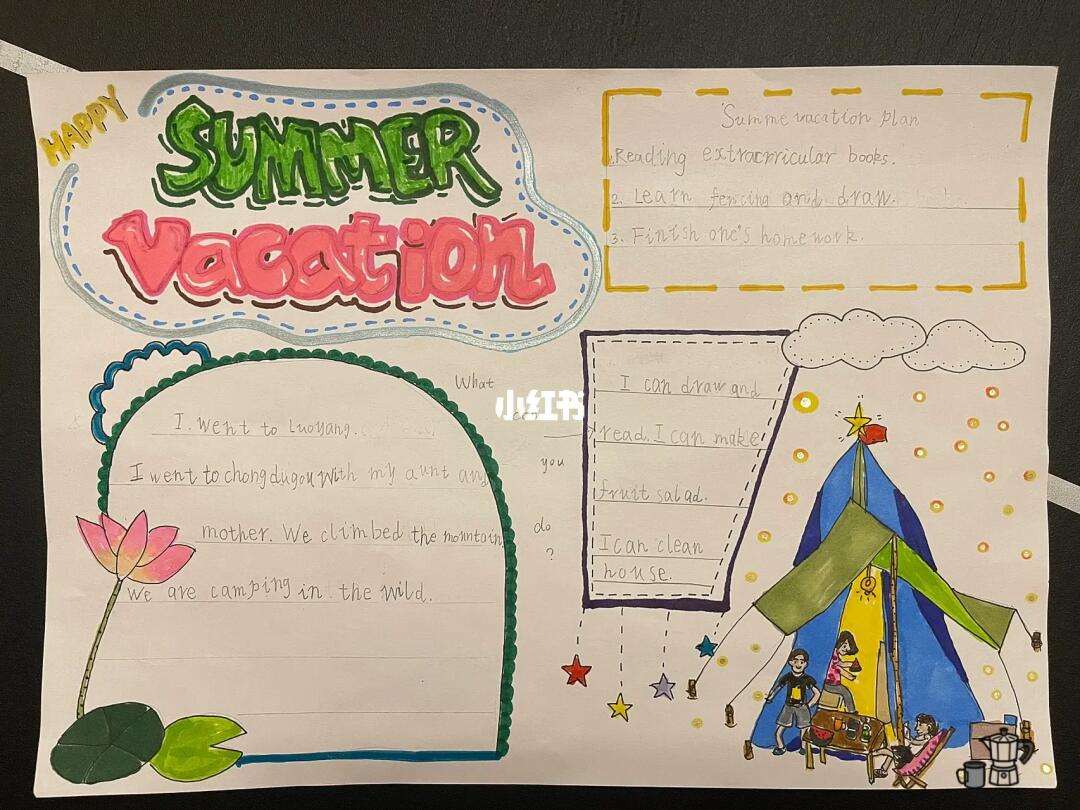 HAPPY
SUMMER
Vacation
Summe vacation plan
1.Reading extracrricular books.
2. Learn fencing and draw.
3. Finish one's homework.
I. went to Luoyang.
I went to chongdugou with my aunt and
mother. We climbed the mountain
We are camping in the wild.
What
can
you
do
?
小红书
I can draw and
read. I can make
fruit salad.
I can clean
house.